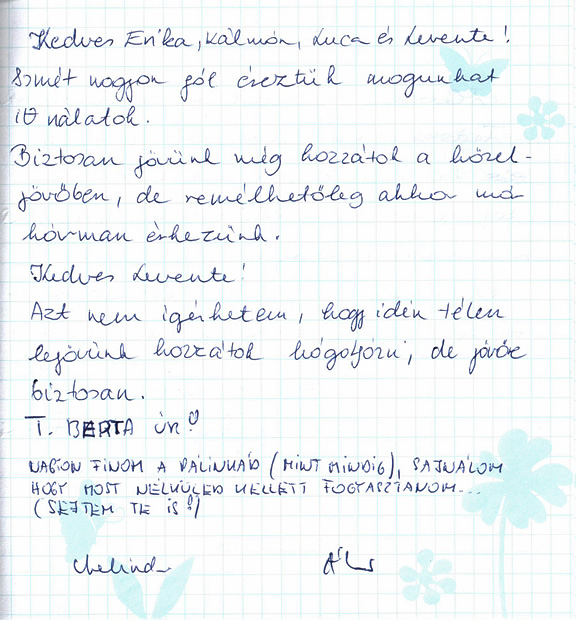 Kedves Erika, Kálmán, Luca és Levente!
Ismét nagyon jól éreztük magunkat
itt nálatok.
Biztosan jövünk még hozzátok a közel-
jövőben, de remélhetőleg akkor már
hárman érkezünk.
Kedves Levente!
Azt nem ígérhetem, hogy idén télen
lejövünk hozzátok hógolyózni, de jövőre
biztosan.
T. BERTA ÚR!
NAGYON FINOM A PÁLINKÁD (MINT MINDIG), SAJNÁLOM
HOGY MOST NÉLKÜLED KELLETT FOGYASZTANOM...
(SEJTEM TE IS!)
Melinda